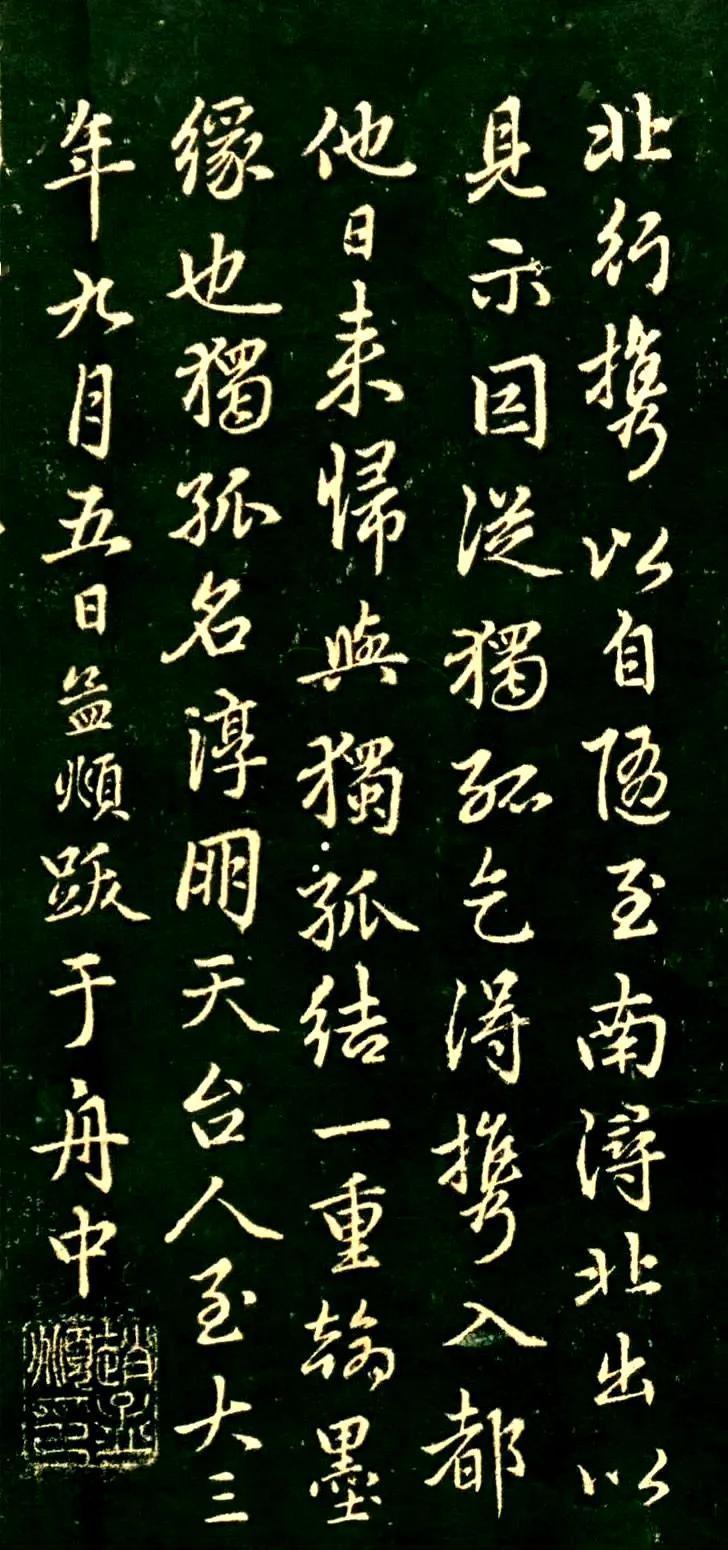 北行携以自随至南潯北出以
見示因從獨孤乞得携入都
他日来歸與獨孤結一重翰墨
縁也獨孤名淳朋天台人至大三
年九月五日孟頫跋于舟中
趙孟頫印